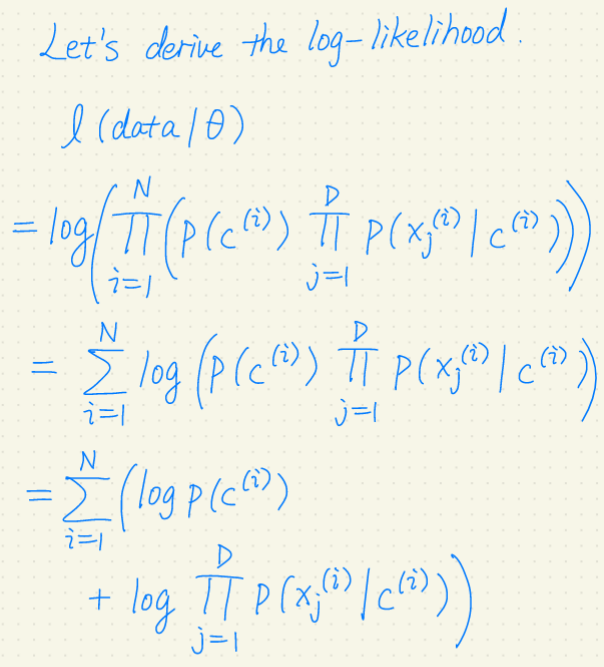 Let's derive the log-likelihood.
l(data|θ)
= log(∏_{i=1}^{N} (p(c^{(i)}) ∏_{j=1}^{D} p(x_j^{(i)} | c^{(i)})))
= ∑_{i=1}^{N} log (p(c^{(i)}) ∏_{j=1}^{D} p(x_j^{(i)} | c^{(i)}))
= ∑_{i=1}^{N} (log p(c^{(i)})
+ log ∏_{j=1}^{D} p(x_j^{(i)} | c^{(i)}))